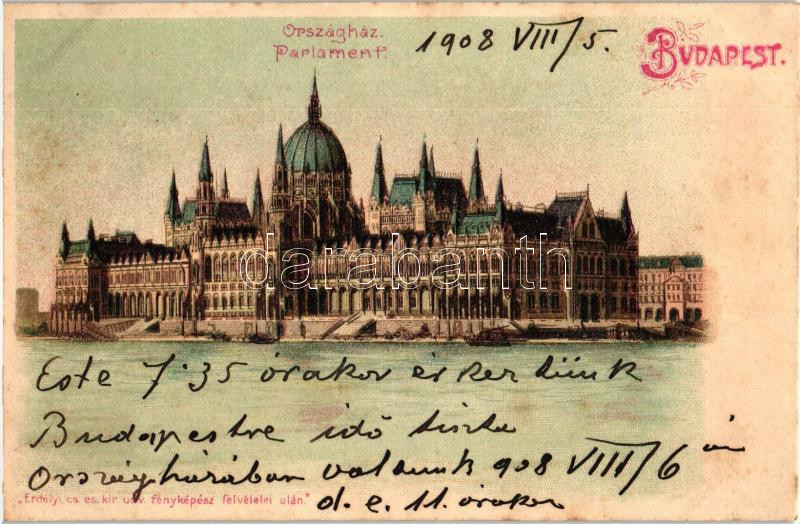 Országház.
Parlament.
1908 VIII/5.
BUDAPEST.
darabanth
Este 7.35 órakor érkeztünk
Budapestre idő tiszta
Országházában voltunk 908 VIII/6 án
"Erdélyi, cs. és. kir. udv. fényképész felvételei után."
d. e. 11. órakor